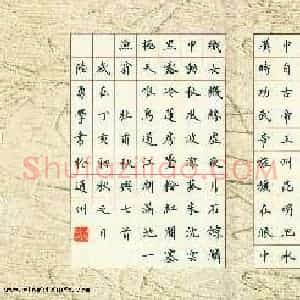 中自古帝王州昆明池水
漢時功武帝旌旗在眼中
織女機絲虛夜月石鯨鱗
甲動秋風波漂菰米沉雲
黑露冷蓮房墜粉紅關塞
極天唯鳥道江湖滿地一
漁翁 杜甫秋興七首
歲在丁亥初秋之月
學書於通州
Shufaziliao.com